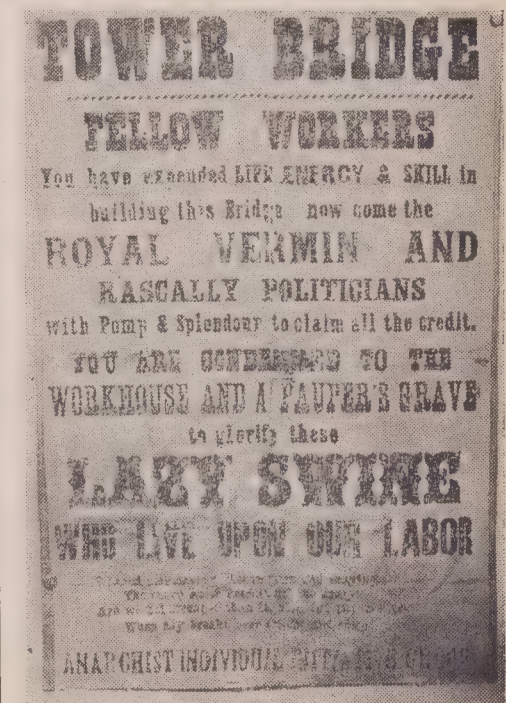 TOWER BRIDGE
FELLOW WORKERS
You have expended LIFE ENERGY & SKILL in
building this Bridge now come the
ROYAL VERMIN AND
RASCALLY POLITICIANS
with Pomp & Splendour to claim all the credit.
YOU ARE CONDEMNED TO THE
WORKHOUSE AND A PAUPER'S GRAVE
to glorify these
LAZY SWINE
WHO LIVE UPON OUR LABOR
ANARCHIST INDIVIDUAL INITIATIVE GROUP